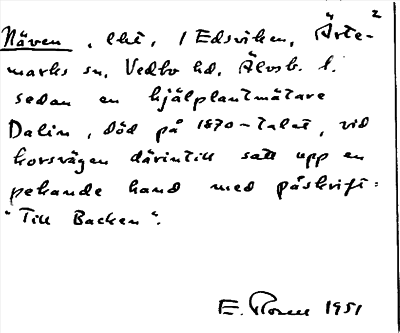 Näven, lht, i Edsviken, Ärte-
2
marks sn, Vedbo hd, Älvsb. l.
sedan en hjälplantmätare
Dalin, död på 1870-talet, vid
korsvägen därintill satt upp en
pekande hand med påskrift:
"Till Backen".
E. 1951